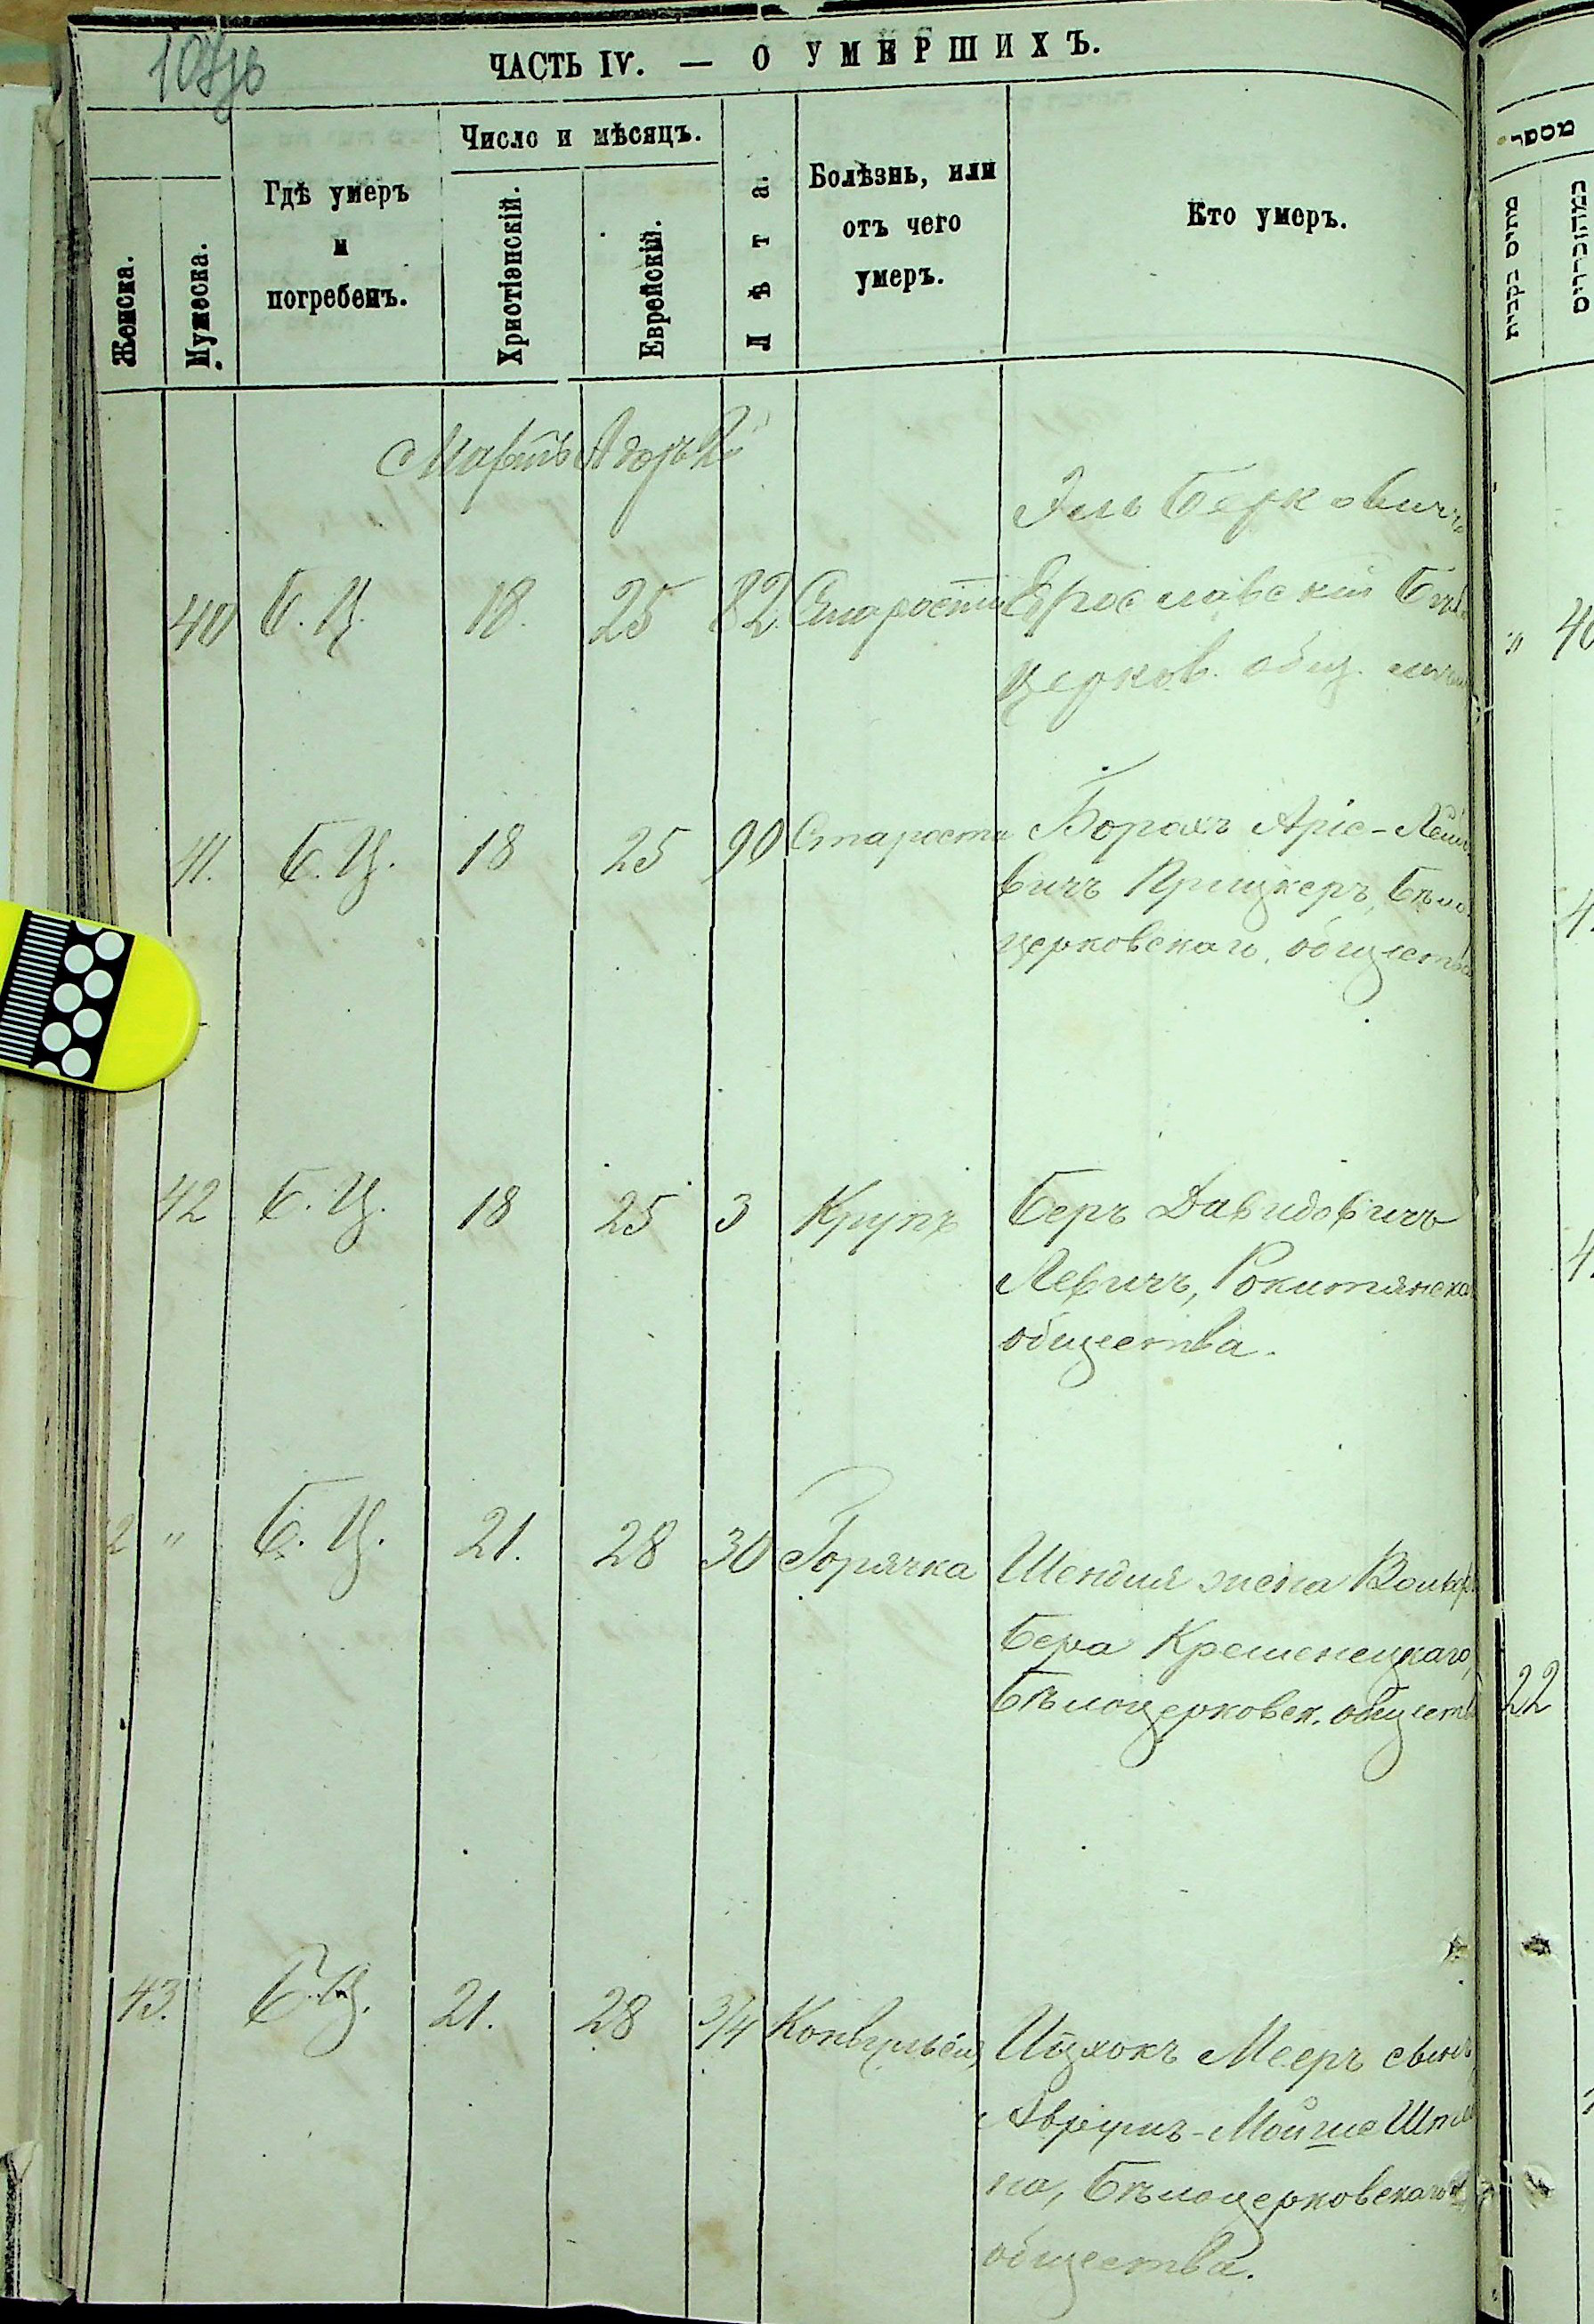 ЧАСТЬ IV. — О УМЕРШИХЪ.
Женска.
Мужеска.
Гдѣ умеръ
и
погребенъ.
Число и мѣсяцъ.
Христіенскій.
Еврейскій.
Лѣта.
Болѣзнь, или
отъ чего
умеръ.
Кто умеръ.
מספר
מתים נקבית
Мартъ
40 Б. Ц. 18. 25 82 Старости
Берковичъ
церков. общ.
41. Б. Ц. 18 25 90 Старости Борохъ Аріе-Лей
вичъ Прицкеръ, Бѣло
церковскаго, общества
42 Б. Ц. 18 25 3 Крупъ Беръ Давидовичъ
Левичъ, Рокитянска
общества.
2 " Б. Ц. 21. 28 30 Горячка Шендля жена Вольф
Бера Кременецкаго,
Бѣлоцерковск. обществ
22
43. Б. Ц. 21. 28 3/4 Конвульсія Ицхокъ Мееръ сынъ
Аврумъ-Мойше Шпи
на, Бѣлоцерковскаго
общества.